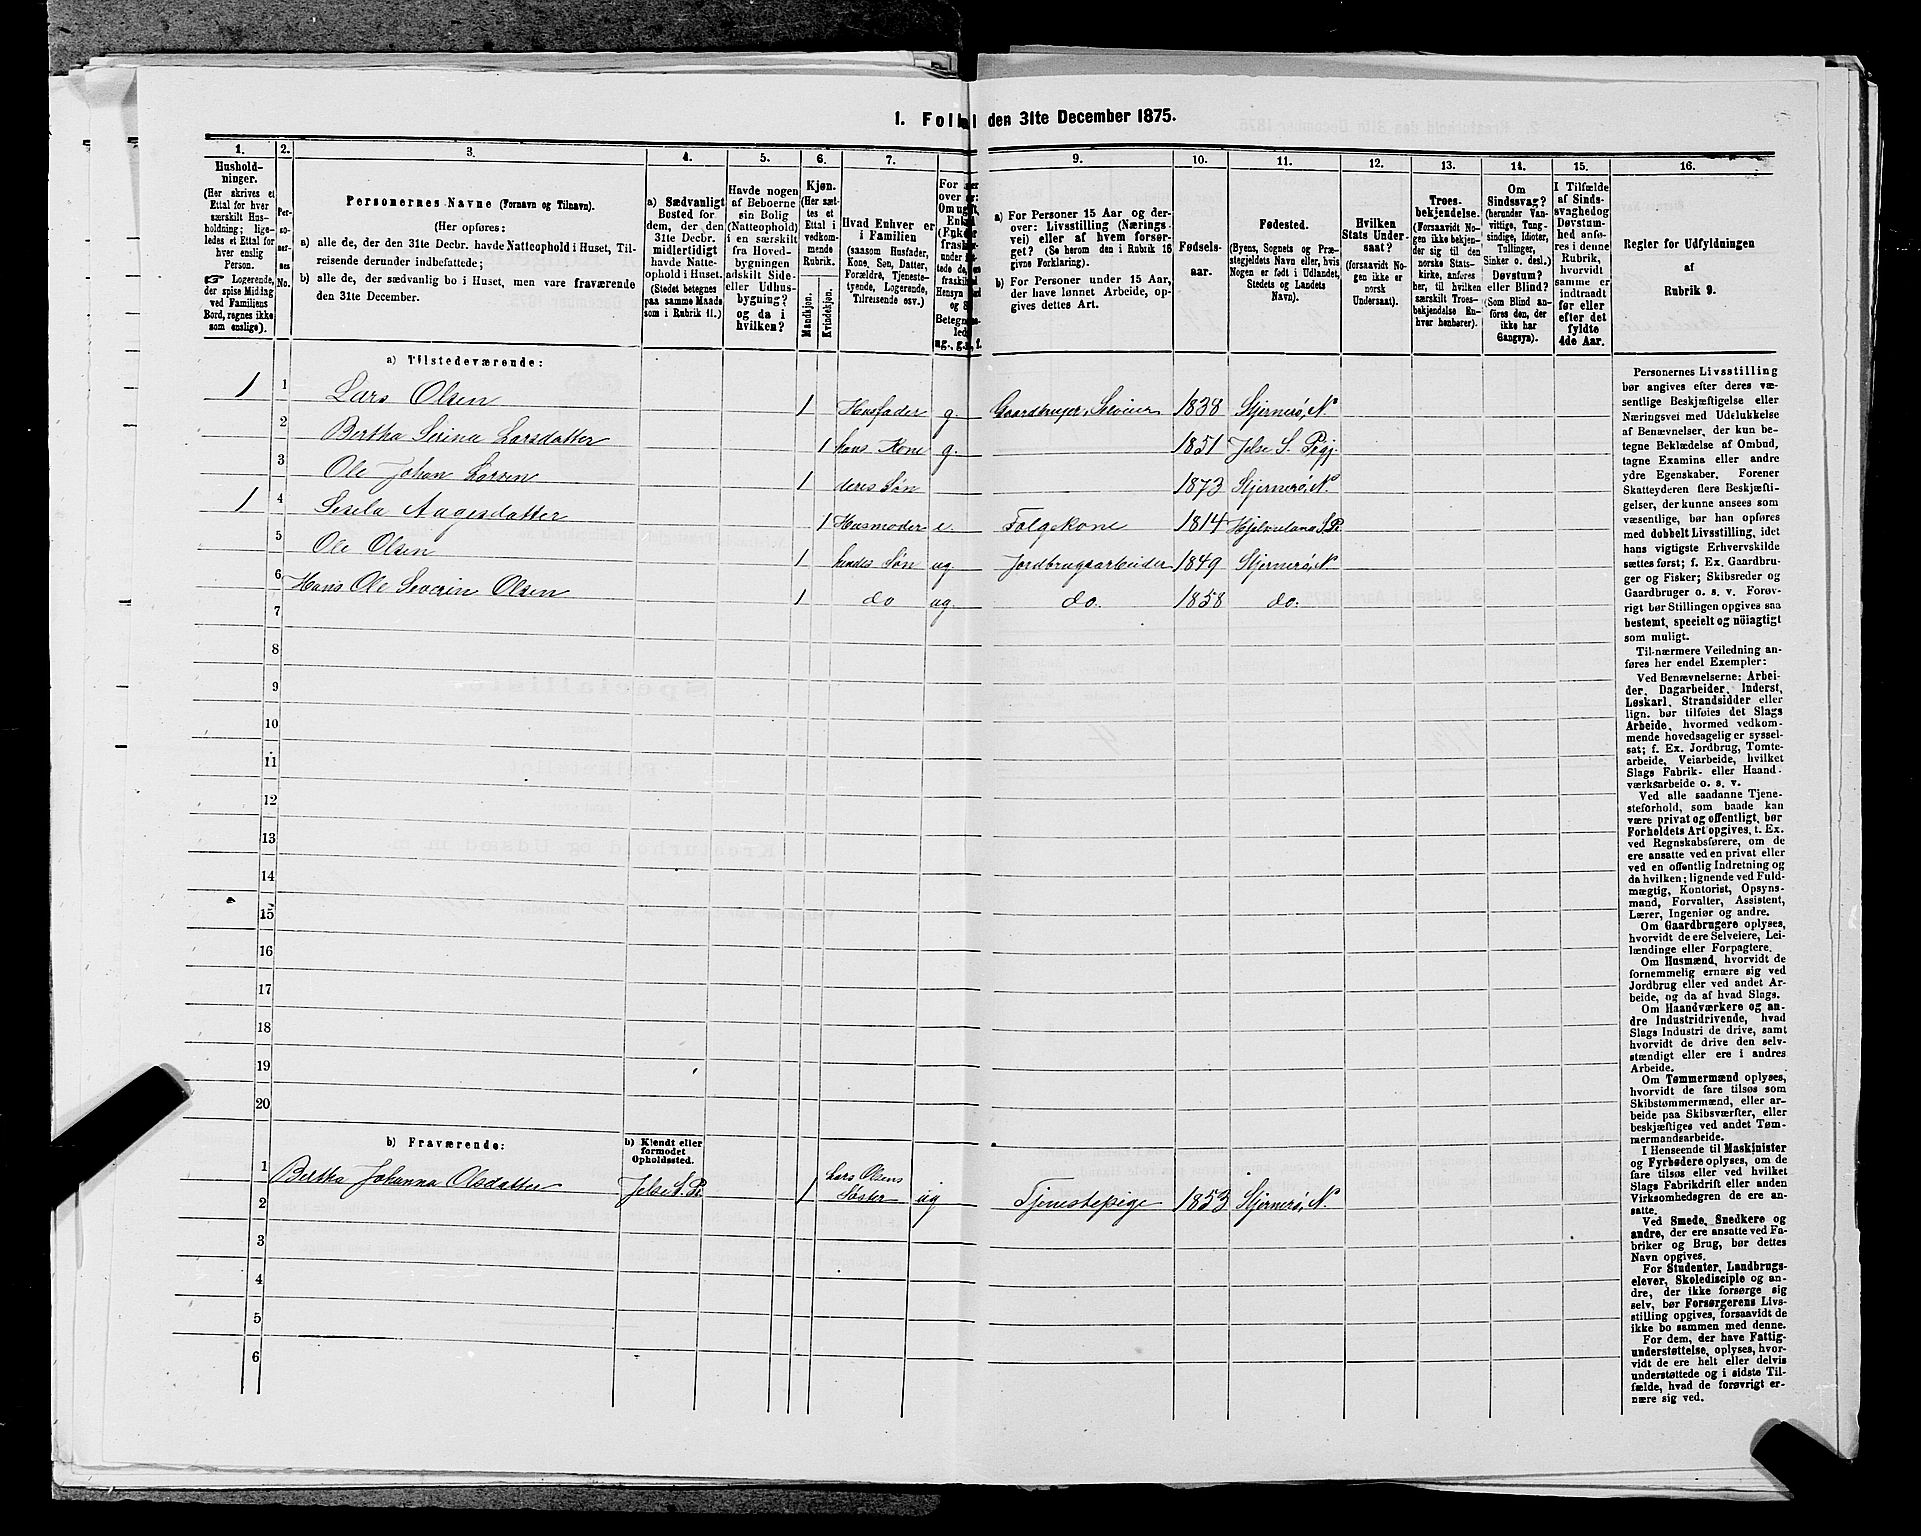 1. Folke
den 31te December 1875.
1.
2.
3.
4.
5.
6.
7.
9.
10.
11.
12.
13.
14.
15.
16.
Hushold-
ninger.
(Her skrives et
Ettal for hver
særskilt Hus-
holdning; lige-
ledes et Ettal for
hver enslig
Person.
☞ Logerende,
der spise Middag
ved Familiens
Bord, regnes ikke
som enslige).
Per-
so-
ner-
nes
No.
Personernes Navne (Fornavn og Tilnavn).
(Her opføres:
a) alle de, der den 31te Decbr. havde Natteophold i Huset, Til-
reisende derunder indbefattede;
b) alle de, der sædvanlig bo i Huset, men vare fraværende
den 31te December.
a) Sædvanligt
Bosted for
dem, der den
31te Decbr.
midlertidigt
havde Natte-
ophold i Huset.
(Stedet betegnes
paa samme Maade
som i Rubrik 11.)
Havde nogen
af Beboerne
sin Bolig
(Natteophold)
i en særskilt
fra Hoved-
bygningen
adskilt Side-
eller Udhus-
bygning?
og da i
hvilken?
Kjøn.
(Her sæt-
tes et
Ettal i
vedkom-
mende
Rubrik.
Mandkjøn.
Kvindekjøn.
Hvad Enhver er
i Familien
(saasom Husfader,
Kone, Søn, Datter,
Forældre, Tjeneste-
tyende, Logerende,
Tilreisende osv.)
a) For Personer 15 Aar og der-
over: Livsstilling (Nærings-
vei) eller af hvem forsør-
get? (Se herom den i Rubrik 16
givne Forklaring).
b) For Personer under 15 Aar,
der have lønnet Arbeide, op-
gives dettes Art.
Fødsels-
aar.
Fødested.
(Byens, Sognets og Præ-
stegjeldets Navn eller, hvis
Nogen er født i Udlandet,
Stedets og Landets
Navn).
Hvilken
Stats Under-
saat?
(forsaavidt No-
gen ikke er
norsk
Undersaat).
Troes-
bekjendelse.
(Forsaavidt No-
gen ikke bekjen-
der sig til den
norske Stats-
kirke, anføres
her, til hvilken
særskilt Troes-
bekjendelse En-
hver henhører).
Om
Sindssvag?
(herunder Van-
vittige, Tung-
sindige, Idioter,
Tullinger,
Sinker o. desl.)
Døvstum?
eller Blind?
(Som Blind an-
føres den, der
ikke har
Gangsyn).
I Tilfælde
af Sinds-
svaghed og
Døvstum-
hed anfø-
res i denne
Rubrik,
hvorvidt
samme er
indtraadt
før eller
efter det
fyldte
4de Aar.
Regler for Udfyldningen
af
Rubrik 9.
a) Tilstedeværende:
1 1 Lars Olsen 1 Husfader g. Gaardbruger, Selveier 1838 Stjernerö, N
2 Bertha Serina Larsdatter 1 hans Kone g. 1851 Jelse S. Prgj.
3 Ole Johan Larsen 1 deres Søn 1873 Stjernerö, N.
1 4 Sesela Aagesdatter 1 Husmoder e. Folgekone 1814 Hjelmeland S. Pr.
5 Ole Olsen 1 hendes Søn ug. Jordbrugsarbeider 1849 Stjernerö, N.
6 Hans Ole Severin Olsen 1 do ug. do. 1858 do.
7
8
9
10
11
12
13
14
15
16
17
18
19
20
b) Fraværende:
b) Kjendt eller
formodet
Opholdssted.
1 Bertha Johanna Olsdatter Jelse S. Pr. 1 Lars Olsens
Søster ug Tjenestepige 1853 Stjernerö, N.
2
3
4
5
6
Personernes Livsstilling
bør angives efter deres væ-
sentlige Beskjæftigelse eller
Næringsvei med Udelukkelse
af Benævnelser, der kun be-
tegne Beklædelse af Ombud,
tagne Examina eller andre
ydre Egenskaber. Forener
Skatteyderen flere Beskjæfti-
gelser, der kunne ansees som
væsentlige, bør han opføres
med dobbelt Livsstilling, idet
hans vigtigste Erhvervskilde
sættes først; f. Ex. Gaardbru-
ger og Fisker; Skibsreder og
Gaardbruger o. s. v. Forøv-
rigt bør Stillingen opgives saa
bestemt, specielt og nöiagtigt
som muligt.
Til nærmere Veiledning an-
føres her endel Exempler:
Ved Benævnelserne: Arbei-
der, Dagarbeider, Inderst,
Løskarl, Strandsidder eller
lign. bør tilføies det Slags
Arbeide, hvormed vedkom-
mende hovedsagelig er syssel-
sat; f. Ex. Jordbrug, Tomte-
arbeide, Veiarbeide, hvilket
Slags Fabrik- eller Haand-
værksarbeide o. s. v.
Ved alle saadanne Tjene-
steforhold, som baade kan
være privat og offentligt, bør
Forholdets Art opgives, t. Ex.
ved Regnskabsførere, om de
ere ansatte ved en privat eller
ved en offentlig Indretning og
da hvilken; lignende ved Fuld-
mægtig, Kontorist, Opsyns-
mand, Forvalter, Assistent,
Lærer, Ingeniør og andre.
Om Gaardbrugere oplyses,
hvorvidt de ere Selveiere, Lei-
lændinge eller Forpagtere.
Om Husmænd, hvorvidt de
fornemmelig ernære sig ved
Jordbrug eller ved andet Ar-
beide, og da af hvad Slags.
Om Haandværkere og an-
dre Industridrivende, hvad
Slags Industri de drive, samt
hvorvidt de drive den selv-
stændigt eller ere i andres
Arbeide.
Om Tømmermænd oplyses,
hvorvidt de fare tilsøs som
Skibstømmermænd, eller ar-
beide paa Skibsværfter, eller
beskjæftiges ved andet Tøm-
mermandsarbeide.
I Henseende til Maskinister
og Fyrbødere oplyses, om de
fare tilsøs eller ved hvilket
Slags Fabrikdrift eller anden
Virksomhedsgren de ere an-
satte.
Ved Smede, Snedkere og
andre, der ere ansatte ved Fa-
briker og Brug, bør dettes
Navn opgives.
For Studenter, Landbrugs-
elever, Skoledisciple og an-
dre, der ikke forsørge sig
selv, bør Forsørgerens Livs-
stilling opgives, forsaavidt de
ikke bo sammen med denne.
For dem, der have Fattig-
understøttelse, oplyses, hvor-
vidt de ere helt eller delvis
understøttede og i sidste Til-
fælde, hvad de forøvrigt er-
nære sig ved.